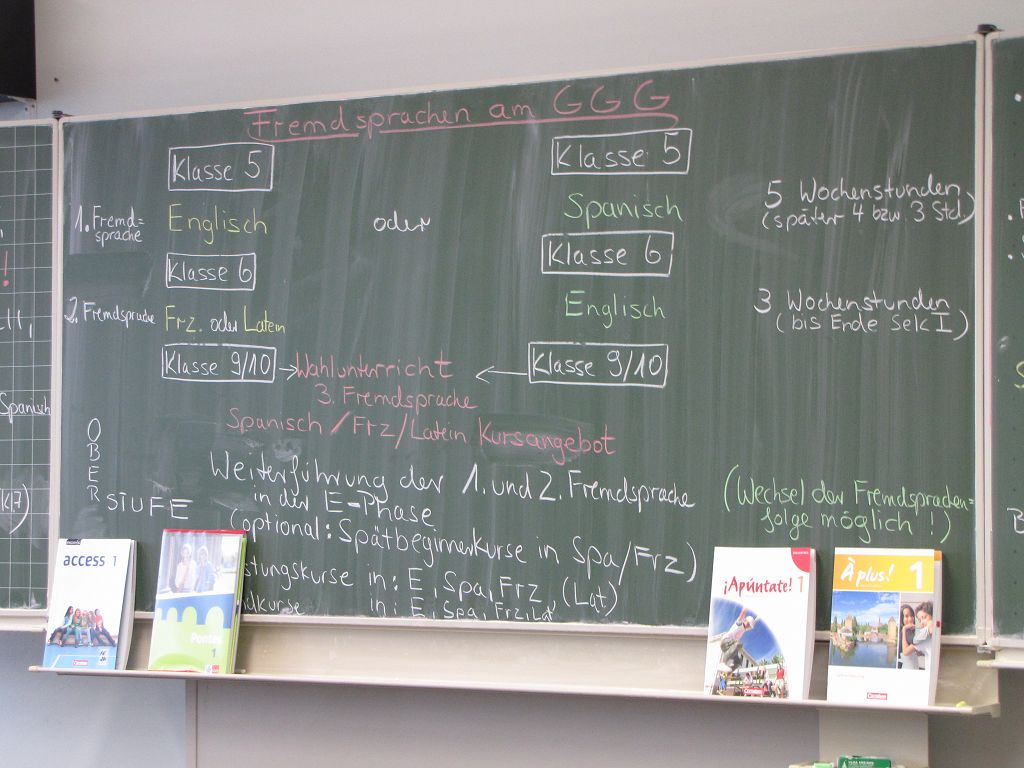 Fremdsprachen am GGG
Klasse 5
Klasse 5
1. Fremd=
sprache
Englisch
oder
Spanisch
5 Wochenstunden
(später 4 bzw. 3 Std.)
Klasse 6
Klasse 6
2. Fremdsprache
Frz. oder Latein
Englisch
3 Wochenstunden
(bis Ende Sek I)
Klasse 9/10
Wahlunterricht
Klasse 9/10
3. Fremdsprache
Spanisch/Frz/Latein Kursangebot
OBER
STUFE
Weiterführung der 1. und 2. Fremdsprache
in der E-Phase
(optional: Spätbeginnerkurse in Spa/Frz)
(Wechsel der Fremdsprachen=
folge möglich!)
stungskurse in: E, Spa, Frz (Lat)
ndkurse in: E, Spa, Frz, Lat
Spanisch
access 1
Cornelsen
Pontes
1
¡Apúntate! 1
Cornelsen
À plus! 1
Cornelsen